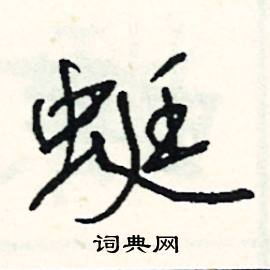 蜓
词典网